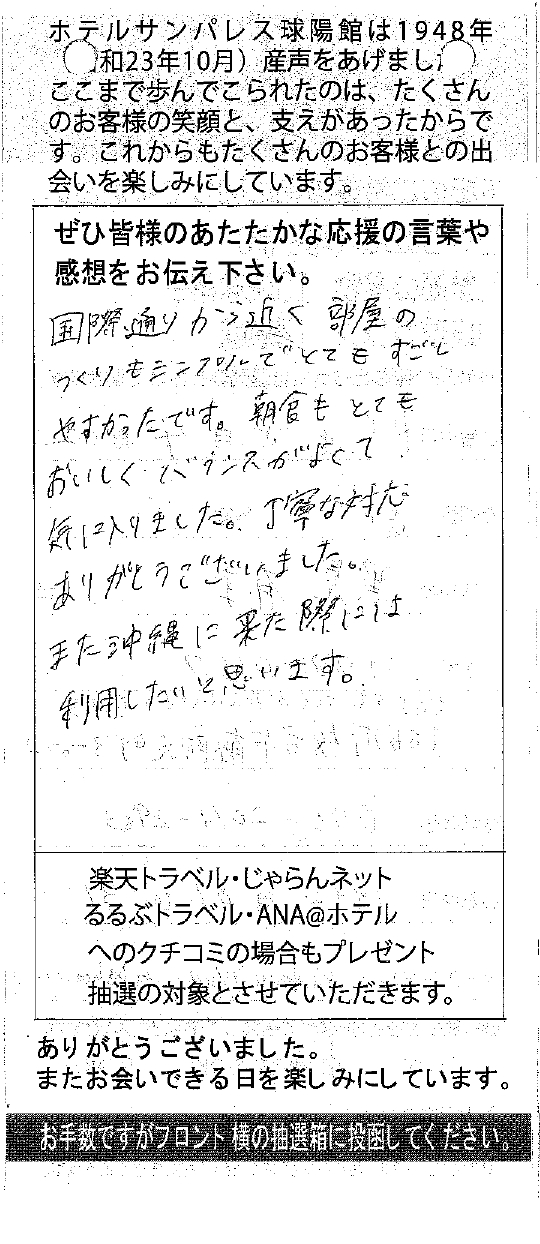 ホテルサンパレス球陽館は1948年
和23年10月）産声をあげまし
ここまで歩んでこられたのは、たくさん
のお客様の笑顔と、支えがあったからで
す。これからもたくさんのお客様との出
会いを楽しみにしています。
ぜひ皆様のあたたかな応援の言葉や
感想をお伝え下さい。
国際通りから近く 部屋の
つくりもシンプルでとても すごし
やすかったです。朝食も とても
おいしく バランスがよくて
気に入りました。丁寧な対応
ありがとうございました。
また沖縄に来た際には
利用したいと思います。
楽天トラベル・じゃらんネット
るるぶトラベル・ANA@ホテル
へのクチコミの場合もプレゼント
抽選の対象とさせていただきます。
ありがとうございました。
またお会いできる日を楽しみにしています。
お手数ですがフロント横の抽選箱に投函してください。